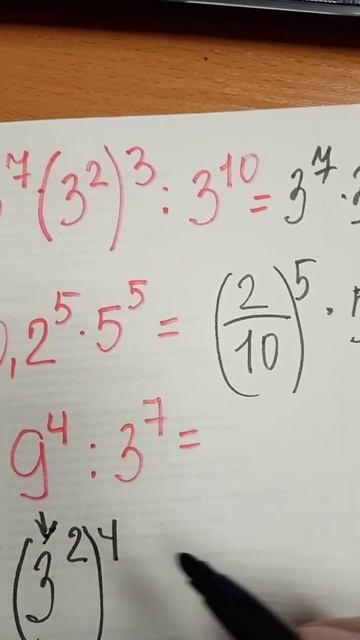 ⁷(3²)³ : 3¹⁰ = 3⁷ ·
,2⁵ · 5⁵ = (2/10)⁵ ·
9⁴ : 3⁷ =
(3²)⁴